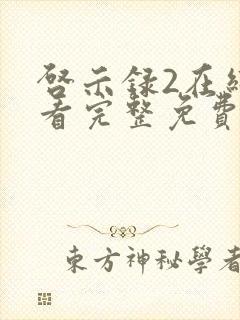 啓示録2在
看完整免費
東方神秘學者